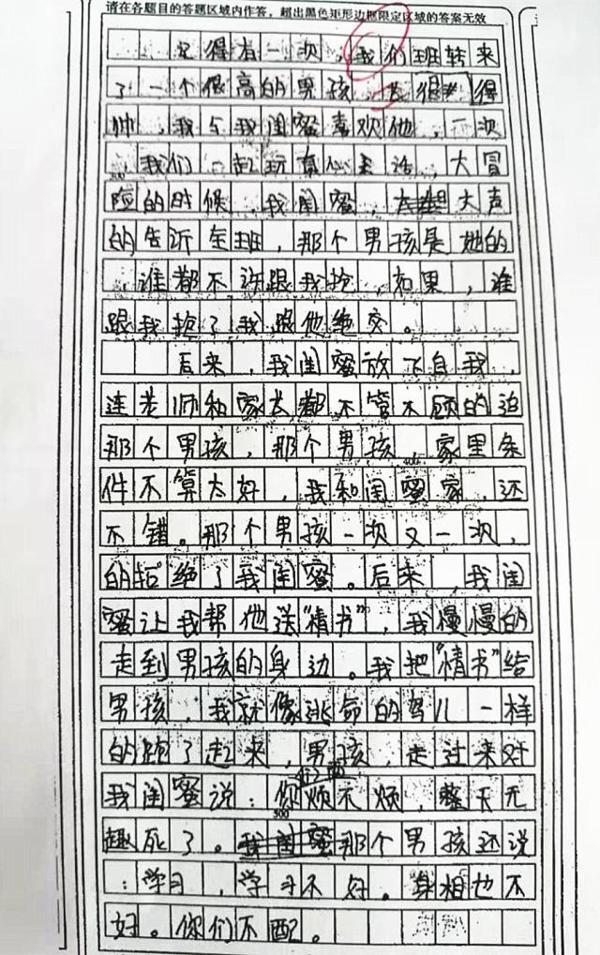 请在各题目的答题区域内作答,超出黑色矩形边框限定区域的答案无效
记得有一次,我们班转来
了一个很高的男孩,长得
帅,我与我闺蜜喜欢他,一次
,我们一起玩真心话,大冒
险的时候,我闺蜜,大声
的告诉全班,那个男孩是她的
,谁都不许跟我抢,如果,谁
跟我抢了我跟他绝交。
后来,我闺蜜放飞自我,
连老师和家长都不管不顾的追
那个男孩,那个男孩,家里条
400
件不算太好,我和闺蜜家,还
不错。那个男孩一次又一次,
的拒绝了我闺蜜。后来,我闺
蜜让我帮他送“情书”,我慢慢的
走到男孩的身边。我把“情书”给
男孩,我就像逃命的鸟儿一样
的跑了起来,男孩,走过来对
我闺蜜说:你烦不烦,整天无
500
趣死了。我闺蜜那个男孩还说
:学习,学习不好。真相也不
好。你们不配。